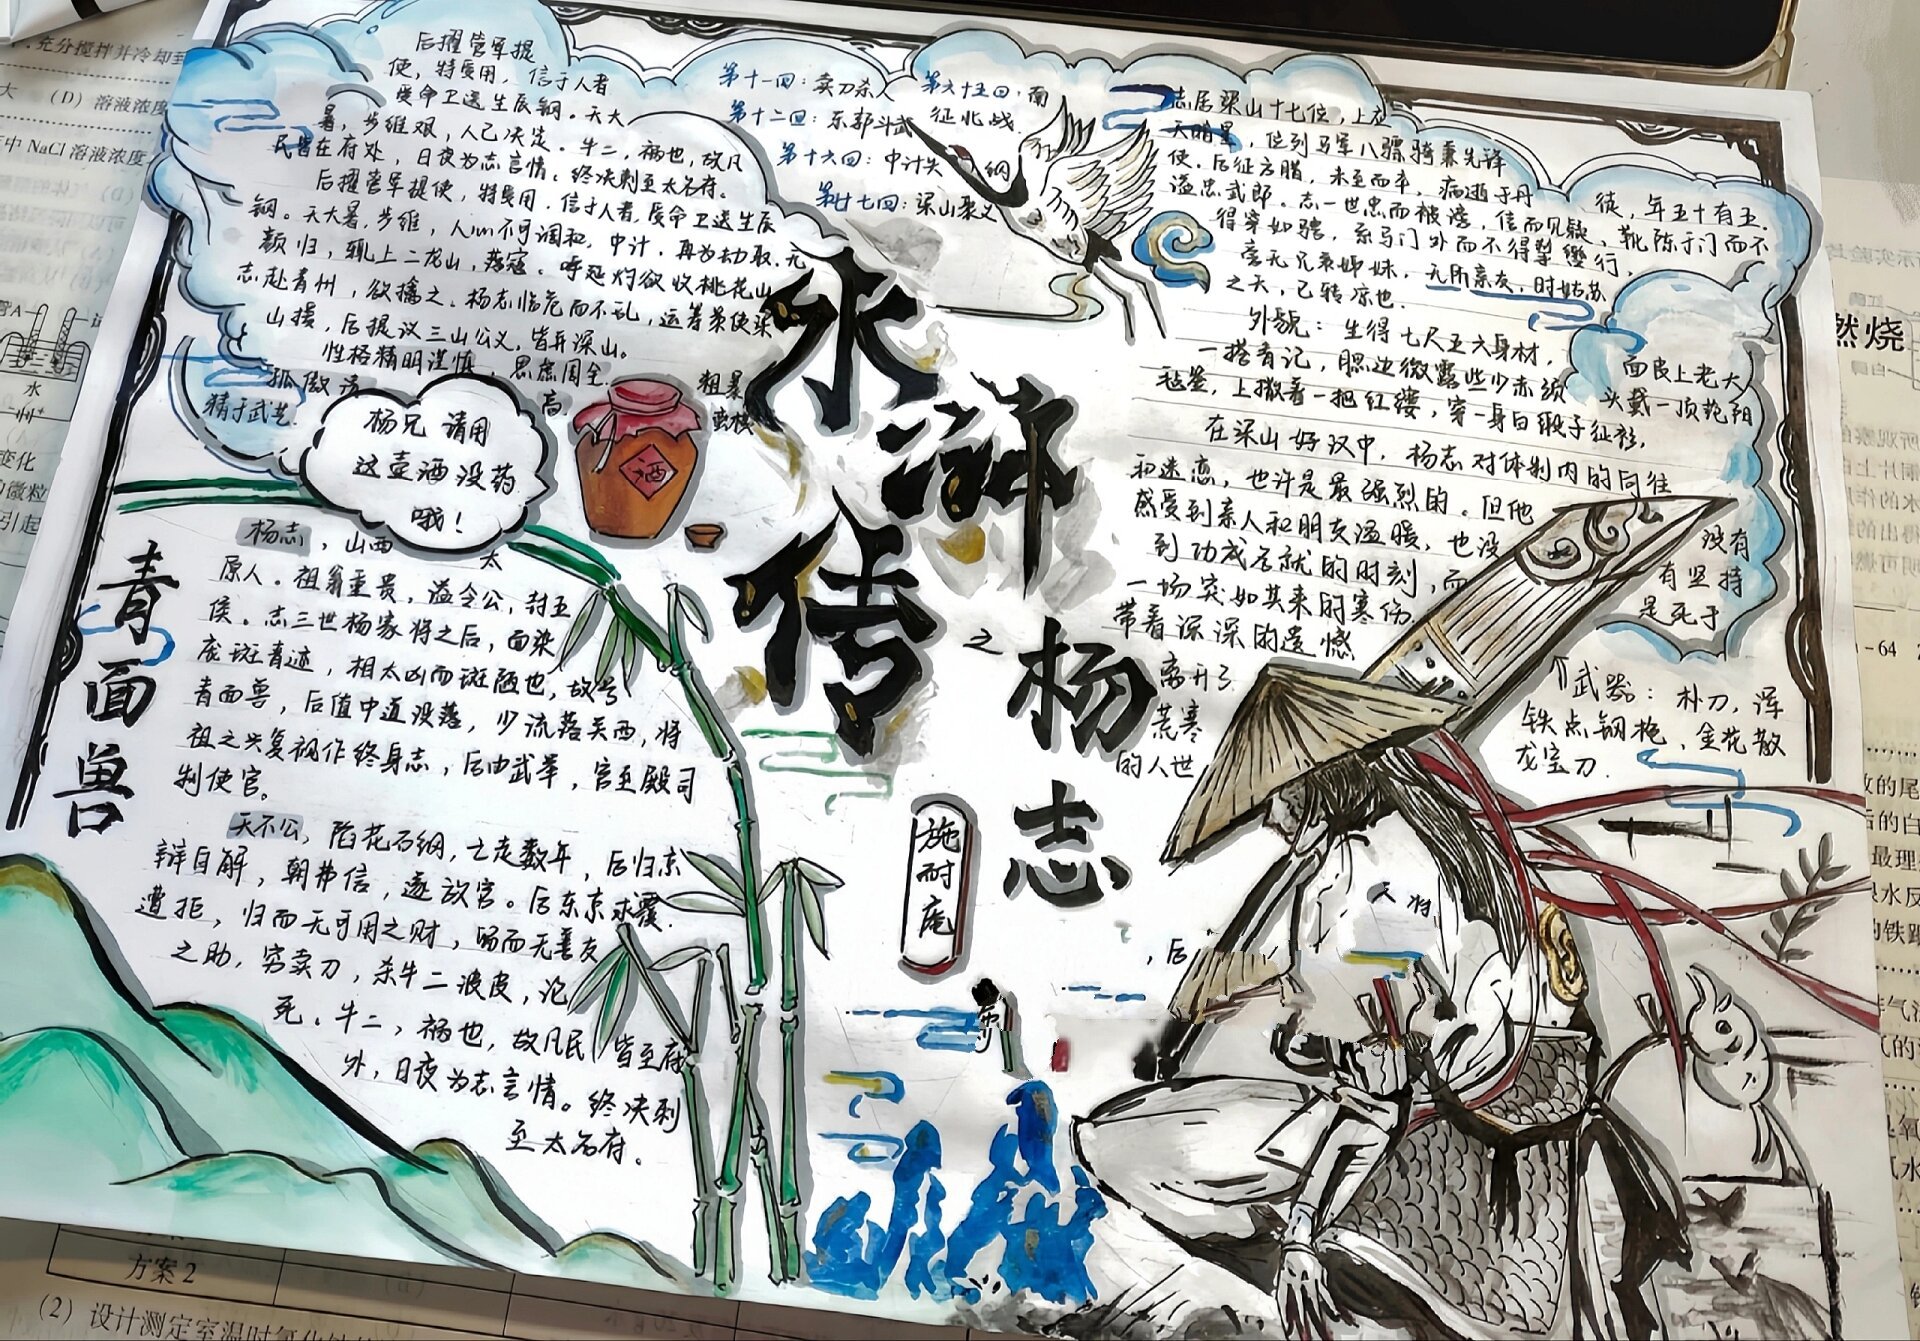 后擢管军提
使，特受用，信于人者
受命卫送生辰钢。天大
暑，步维艰，人己决定。牛二，祸也，故凡
民皆在府处，日夜为志言情。终决刺至太名府。
后擢管军提使，特受用，信于人者，受命卫送生辰
钢。天大暑，步维，人心不可调和，中计，再为劫取，无
颜归，辄上二龙山，落寇。呼延灼欲收桃花山
志赴青州，欲擒之。杨志临危而不乱，运筹策使梁
山援，后提议三山公义，皆弃深山。
性格精明谨慎，思虑周全
孤傲清
高
粗暴
蛮横
精于武艺
第十一回：卖刀杀人
第十二回：东郭斗武
第十六回：中计失
纲
第廿七回：梁山聚义
第六十五回：南
征北战
志居梁山十七位，上应
天暗星，位列马军八骠骑兼先锋
使。后征方腊，未至而卒，病逝于丹
徒，年五十有五。
谥忠武郎。志一世忠而被谤，信而见疑，靴陈于门而不
得穿如骋，系马门外而不得掣辔行，
旁无兄弟姊妹，无所亲友，时姑苏
之天，已转凉也。
外貌：生得七尺五六身材，
面皮上老大
一搭青记，腮边微露些少赤须
头戴一顶范阳
毡笠，上撒着一把红缨，穿一身白缎子征衫，
在梁山好汉中，杨志对体制内的向往
和迷恋，也许是最强烈的。但他
没有
感受到亲人和朋友温暖，也没
有坚持
到功成名就的时刻，而
是死于
一场突如其来的寒伤
带着深深的遗憾
离开了
荒寒
的人世
武器：朴刀，浑
铁点钢枪，金花散
龙宝刀
杨兄请用
这壶酒没药
哦！
酒
水
浒
传
之
杨
志
施耐庵
青面兽
杨志，山西
太
原人。祖翁重贵，谥令公，封五
侯。志三世杨家将之后，面染
庞斑青迹，相太凶而斑陋也，故号
青面兽，后值中道没落，少流落关西，将
祖之兴复视作终身志，后由武举，官至殿司
制使官。
天不公，陷花石纲，亡走数年，后归京
辩自解，朝弗信，逐放官。后东京求覆
遭拒，归而无可用之财，旸而无喜友
之助，穷卖刀，杀牛二泼皮，论
死。牛二，祸也，故凡民皆至府
外，日夜为志言情。终决刺
至太名府。
，后
天将
充分搅拌并冷却到
大 (D) 溶液浓度
中NaCl溶液浓度
水
变化
引起
燃烧
红磷
白
-64
方案2
(2) 设计测定室温时